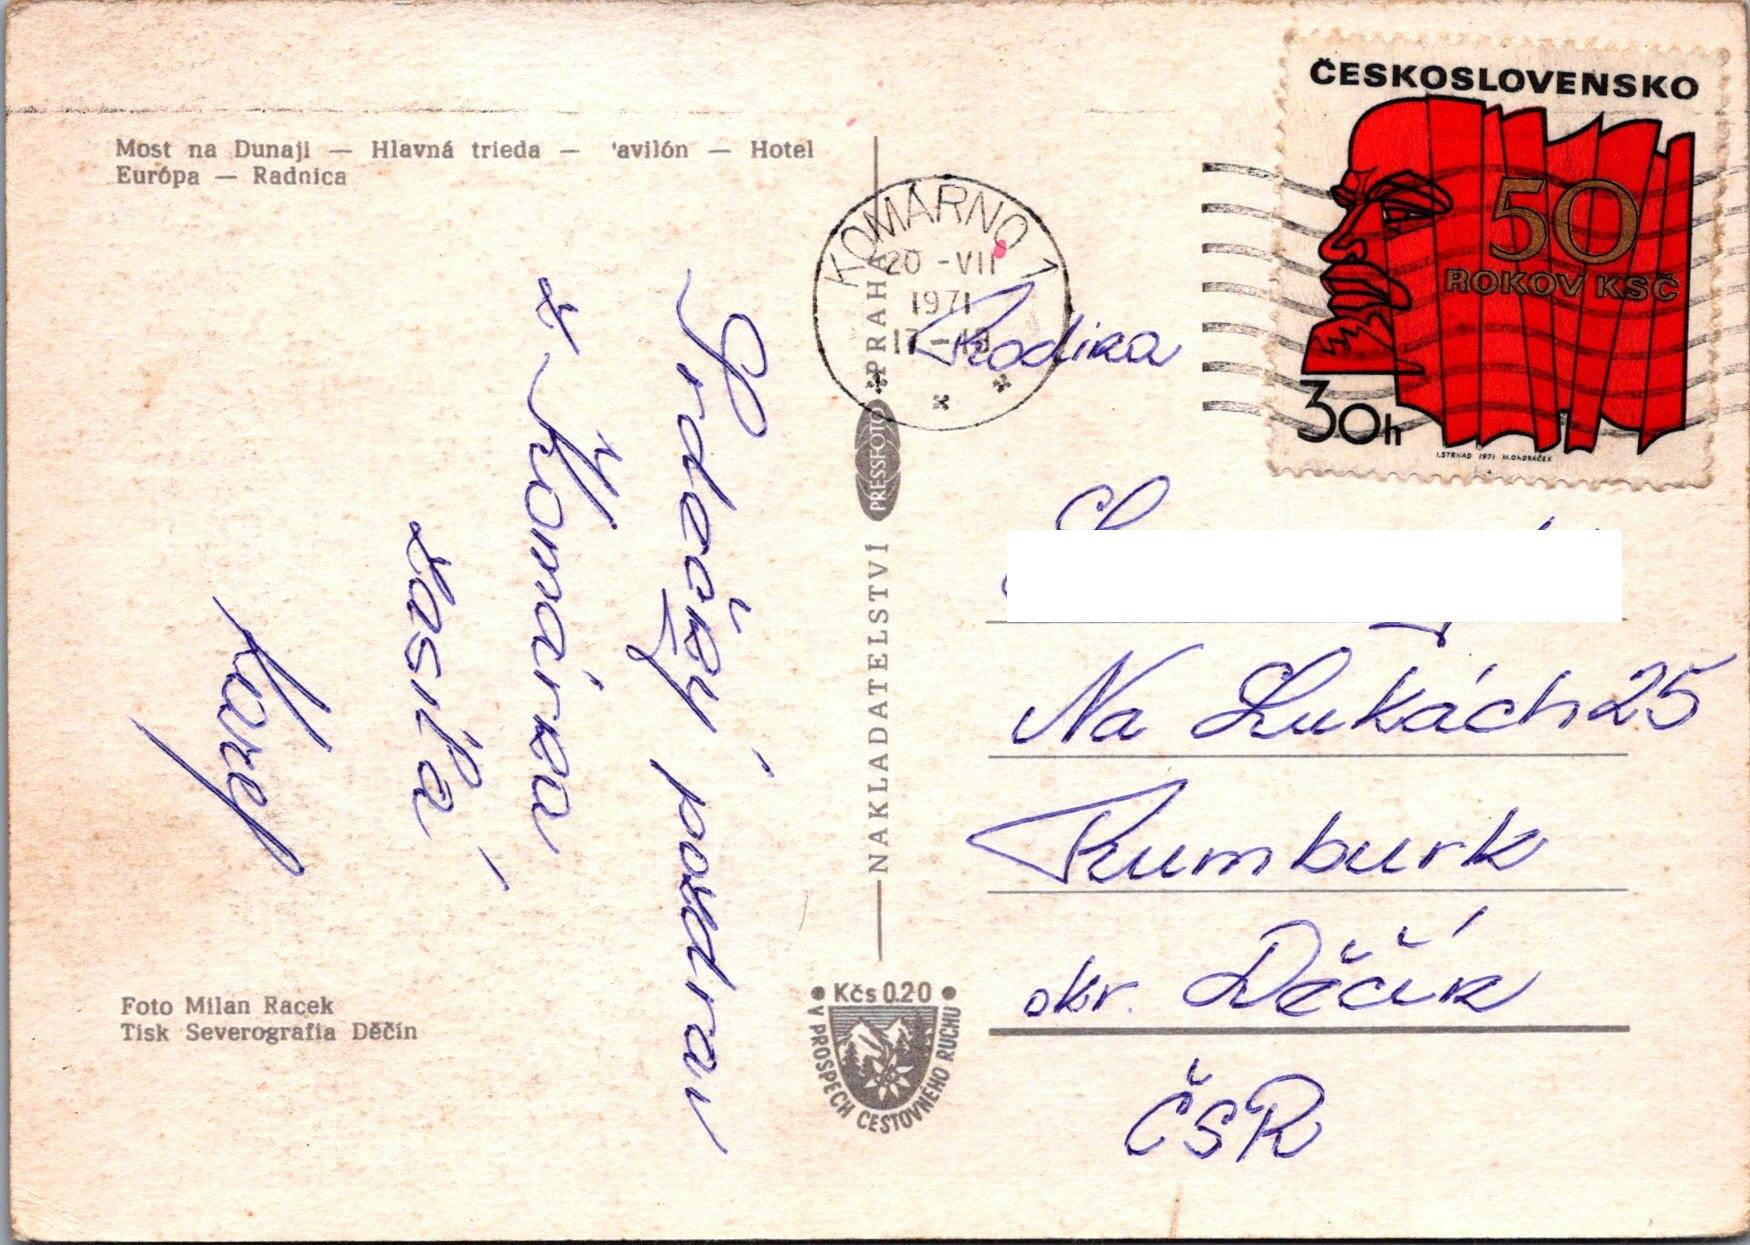 Most na Dunaji — Hlavná trieda — 'avilón — Hotel
Európa — Radnica
Srdečný pozdrav
z Komárna
zasílá
Karel
Foto Milan Racek
Tisk Severografia Děčín
NAKLADATELSTVÍ PRESSFOTO PRAHA
Kčs 0.20
V PROSPĚCH CESTOVNÉHO RUCHU
KOMÁRNO 1
20 -VII
1971
17-18
ČESKOSLOVENSKO
50
ROKOV KSČ
30h
I.STRNAD 1971 M.ONDRÁČEK
Rodina
Na Lukách 25
Rumburk
okr. Děčín
ČSR